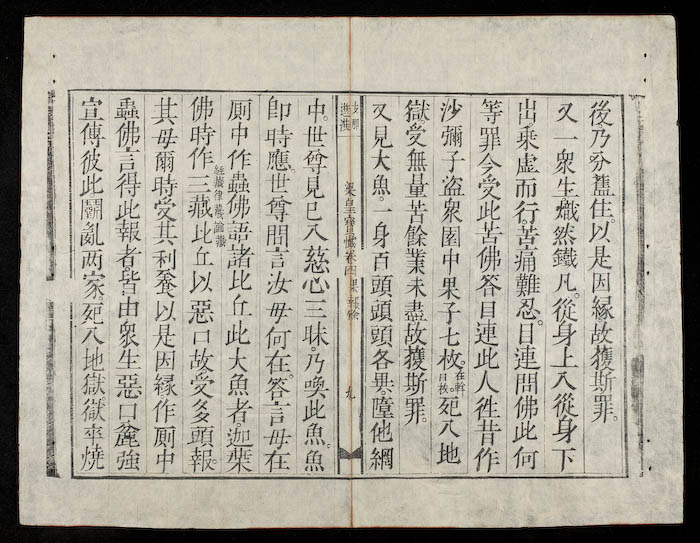 後乃分舊住。以是因緣故獲斯罪。
又一衆生熾然鐵凡。從身上入從身下
出乘虛而行。苦痛難忍。目連問佛此何
等罪今受此苦佛答目連此人徃昔作
沙彌子盜衆園中果子七枚。死入地
獄。受無量苦餘業未盡故獲斯罪。
又見大魚。一身百頭頭頭各異。墮他網
梁皇寶懺卷四 果報餘 九
中。世尊見已入慈心三昧。乃喚此魚。魚
即時應。世尊問言汝母何在。答言母在
厠中作蟲佛語諸比丘此大魚者。迦葉
佛時作三藏比丘以惡口故受多頭報。
經藏律藏論藏
其母爾時受其利養以是因緣作厠中
蟲佛言得此報者皆由衆生惡口麁強
宣傳彼此鬭亂兩家。死入地獄獄卒燒